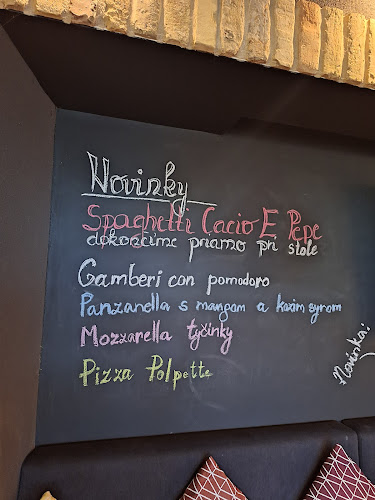 Novinky
Spaghetti Cacio E Pepe
dokončíme priamo pri stole
Gamberi con pomodoro
Panzanella s mangom a kozím syrom
Mozzarella tyčinky
Pizza Polpette
Novinka!